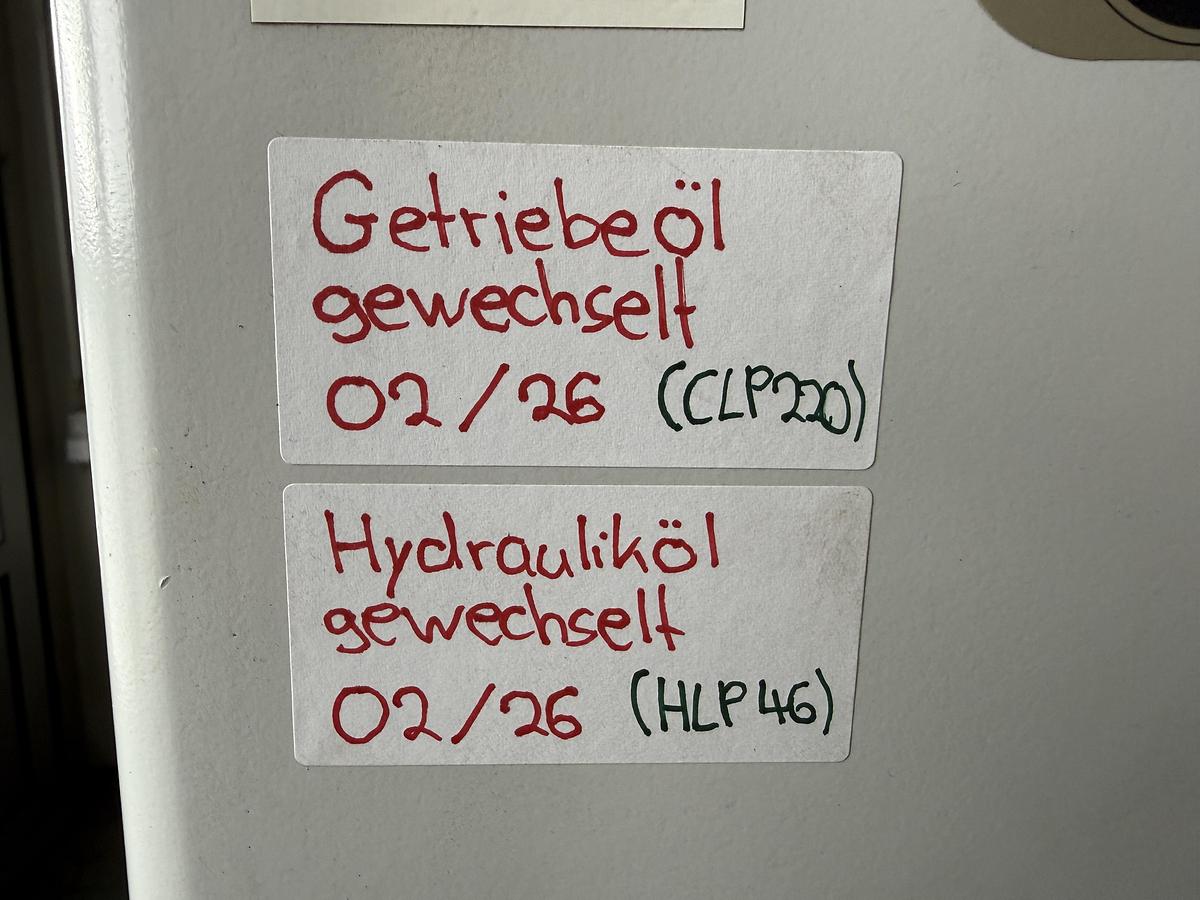 Getriebeöl
gewechselt
02/26 (CLP220)
Hydrauliköl
gewechselt
02/26 (HLP46)